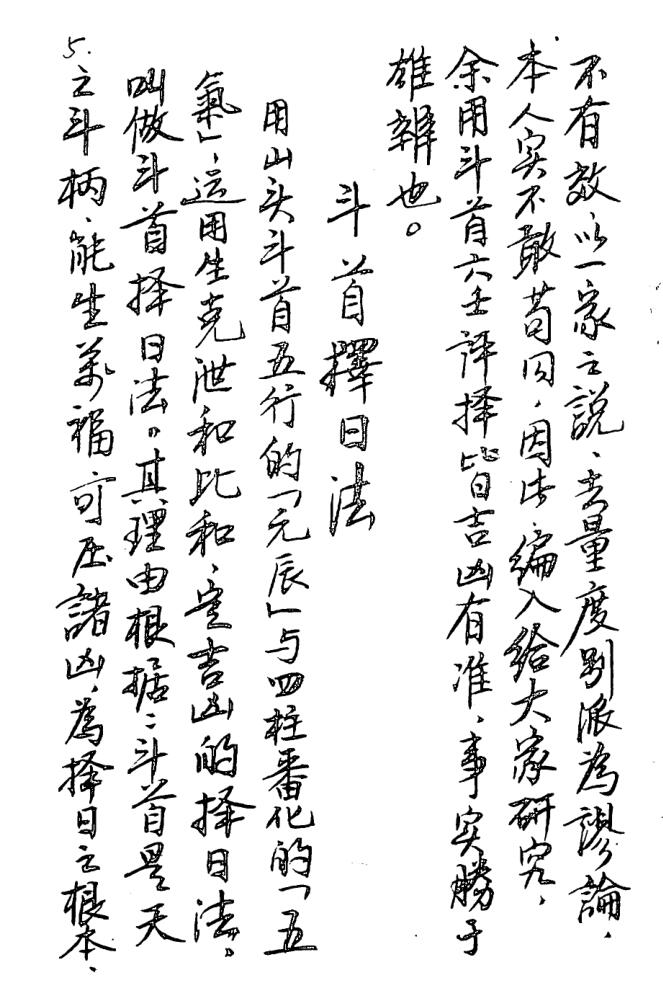 不有效以一家之説、去量度别派為謬論、
本人实不敢苟同，因此編入給大家研究，
余用斗首六壬評择皆日吉凶有准、事实勝于
雄辯也。
斗首擇日法
用山头斗首五行的「元辰」与四柱番化的「五
氣」、运用生克泄和比和、定吉凶的择日法。
叫做斗首择日法。其理由根据：斗首是天
之斗柄、能生萬福、可压諸凶、為择日之根本、
5.